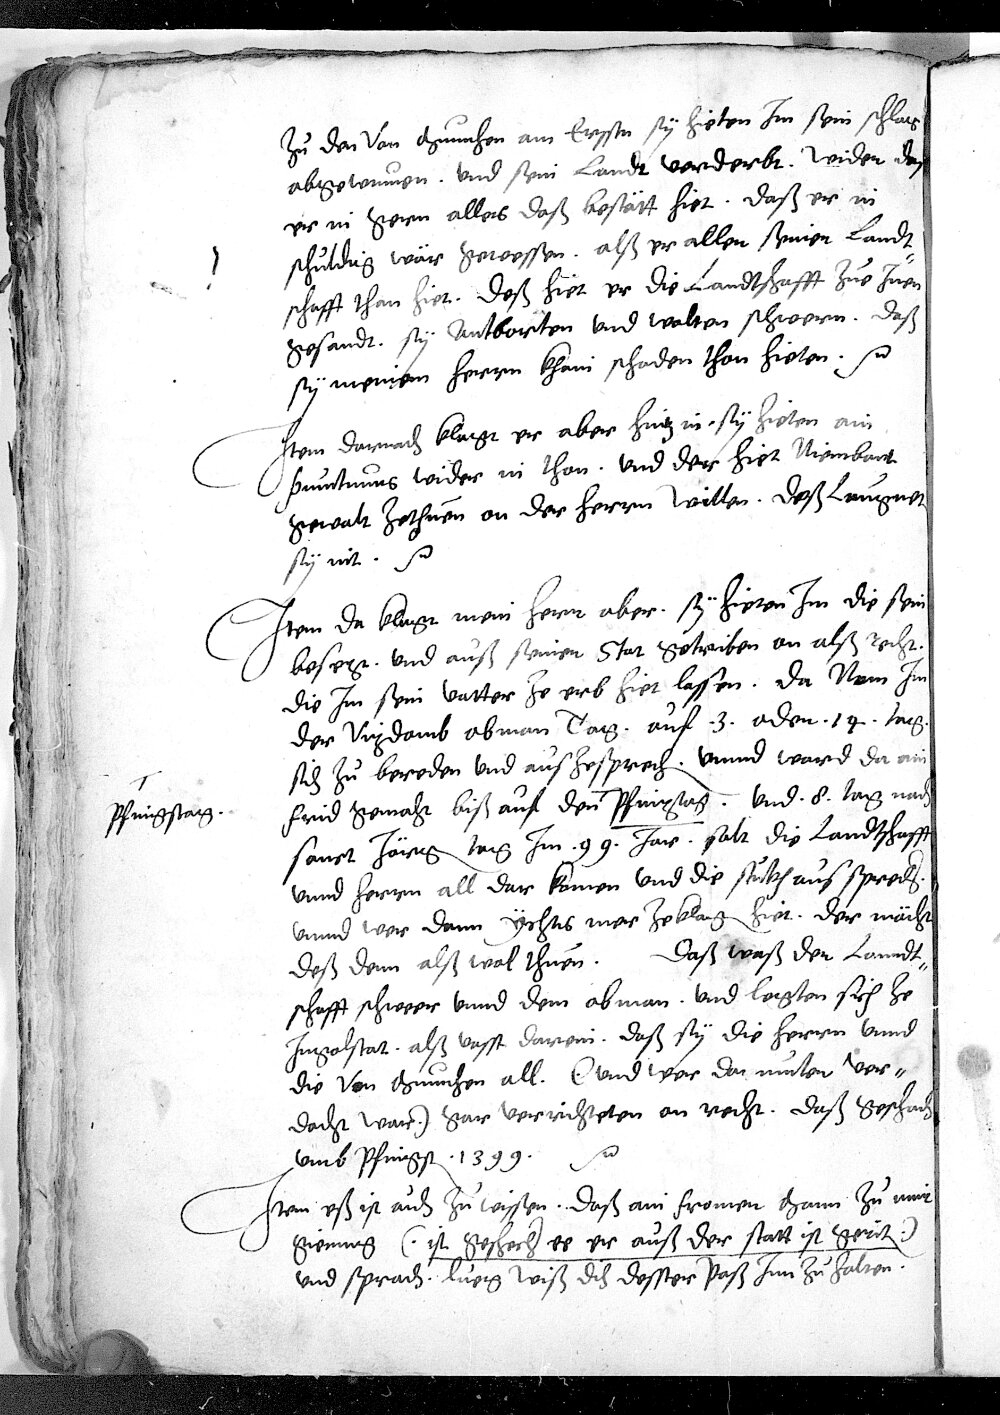 zu den von München am Ersten sy hieten Im sein schlos
abgewunnen. und sein Landt verderbt. Wider das
er in gern alles daß bestätt hiet. daß er in
schuldig wär gewessen. alß er allen seinen Landt=
schafft than hiet. deß hiet er die Landtschafft zue Inen
gesandt. sy Antborten und wolten schweren. daß
sy meinem herrn khain schaden than hieten.
Item darnach klagt er aber hintz in. sy hieten ain
puntnuus wider in than. und der hiet Niembant
gewalt zethuen on der herrn willen. deß Laugnet
sy nit.
Item da klagt mein herr aber. sy hieten Im die sein
besezt. und auß seiner Stat getriben on alß recht.
die Im sein vatter ze erb hiet lassen. da Nam Im
der Vizdomb obman Tag. auf .3. oder .14. tag.
sich zu bereden und aus zesprech. unnd ward da ain
frid gemacht biß auf den Pfingstag. und .8. tag nach
sanct Jörg tag Im .99. Jar. solt die Landtschafft
unnd herrn all dar komen und die stukh aus sprech.
unnd wer dann ÿchts mer zeklag hiet. der möcht
deß denn alß wol thuen. Daß waß der Lanndt=
schafft schwer unnd dem obman. und legten sich ze
Ingolstat. alß vasst darein. daß sy die herrn unnd
die von München all. (und wer dar unter ver=
dacht war.) gar verrichteten on recht. daß geschach
umb Pfingst .1399.
Item eß ist auch zu wissen. daß ain fromer Mann zu mir
gieng (. ist geschech ee er auß der statt ist gerit .)
und sprach. lueg wiß dich dester paß Inn zu halten.
Pfingstag.